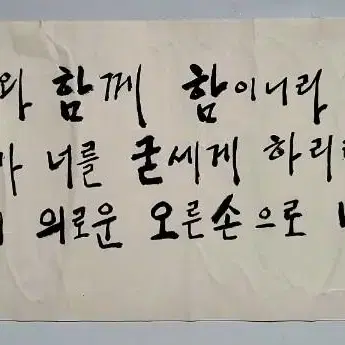 와 함께 함이니라
가 너를 굳세게 하리
의로운 오른손으로